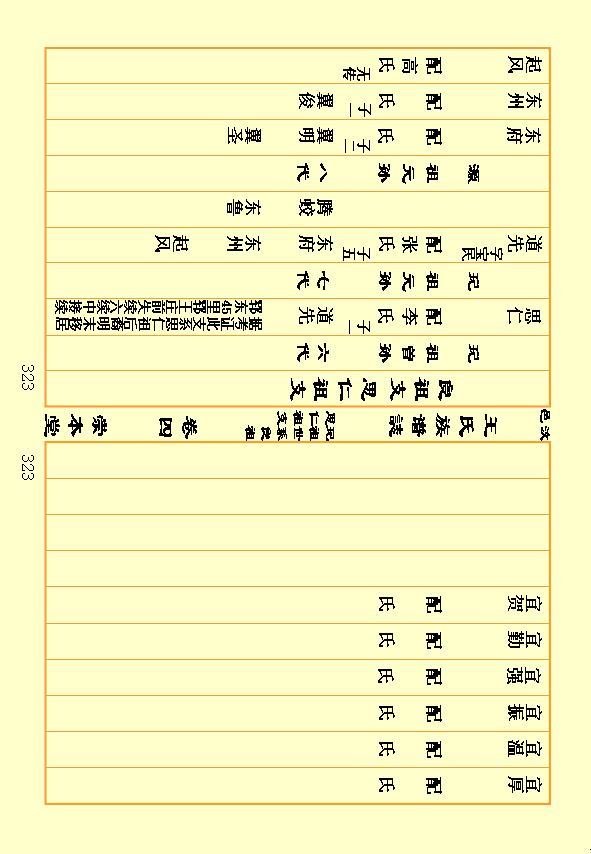 宜厚 配 氏
宜温 配 氏
宜振 配 氏
宜强 配 氏
宜勤 配 氏
宜贺 配 氏
323
次邑 王氏族谱誌 玩祖世系良祖 思仁祖支 卷四 崇本堂
323
良祖支思仁祖支
玩祖曾孙六代
思仁 配李氏 子一 道先 据考证此支系思仁祖后裔明末移居
郓东45里郓王 前失续六续中接续
玩祖元孙七代
道先 字宝民 配张氏 子五 东府 东州 起风
腾蛟 东鲁
灏祖元孙八代
东府 配 氏 子二 翼明 翼圣
东州 配 氏 子一 翼俊
起风 配高氏 无传